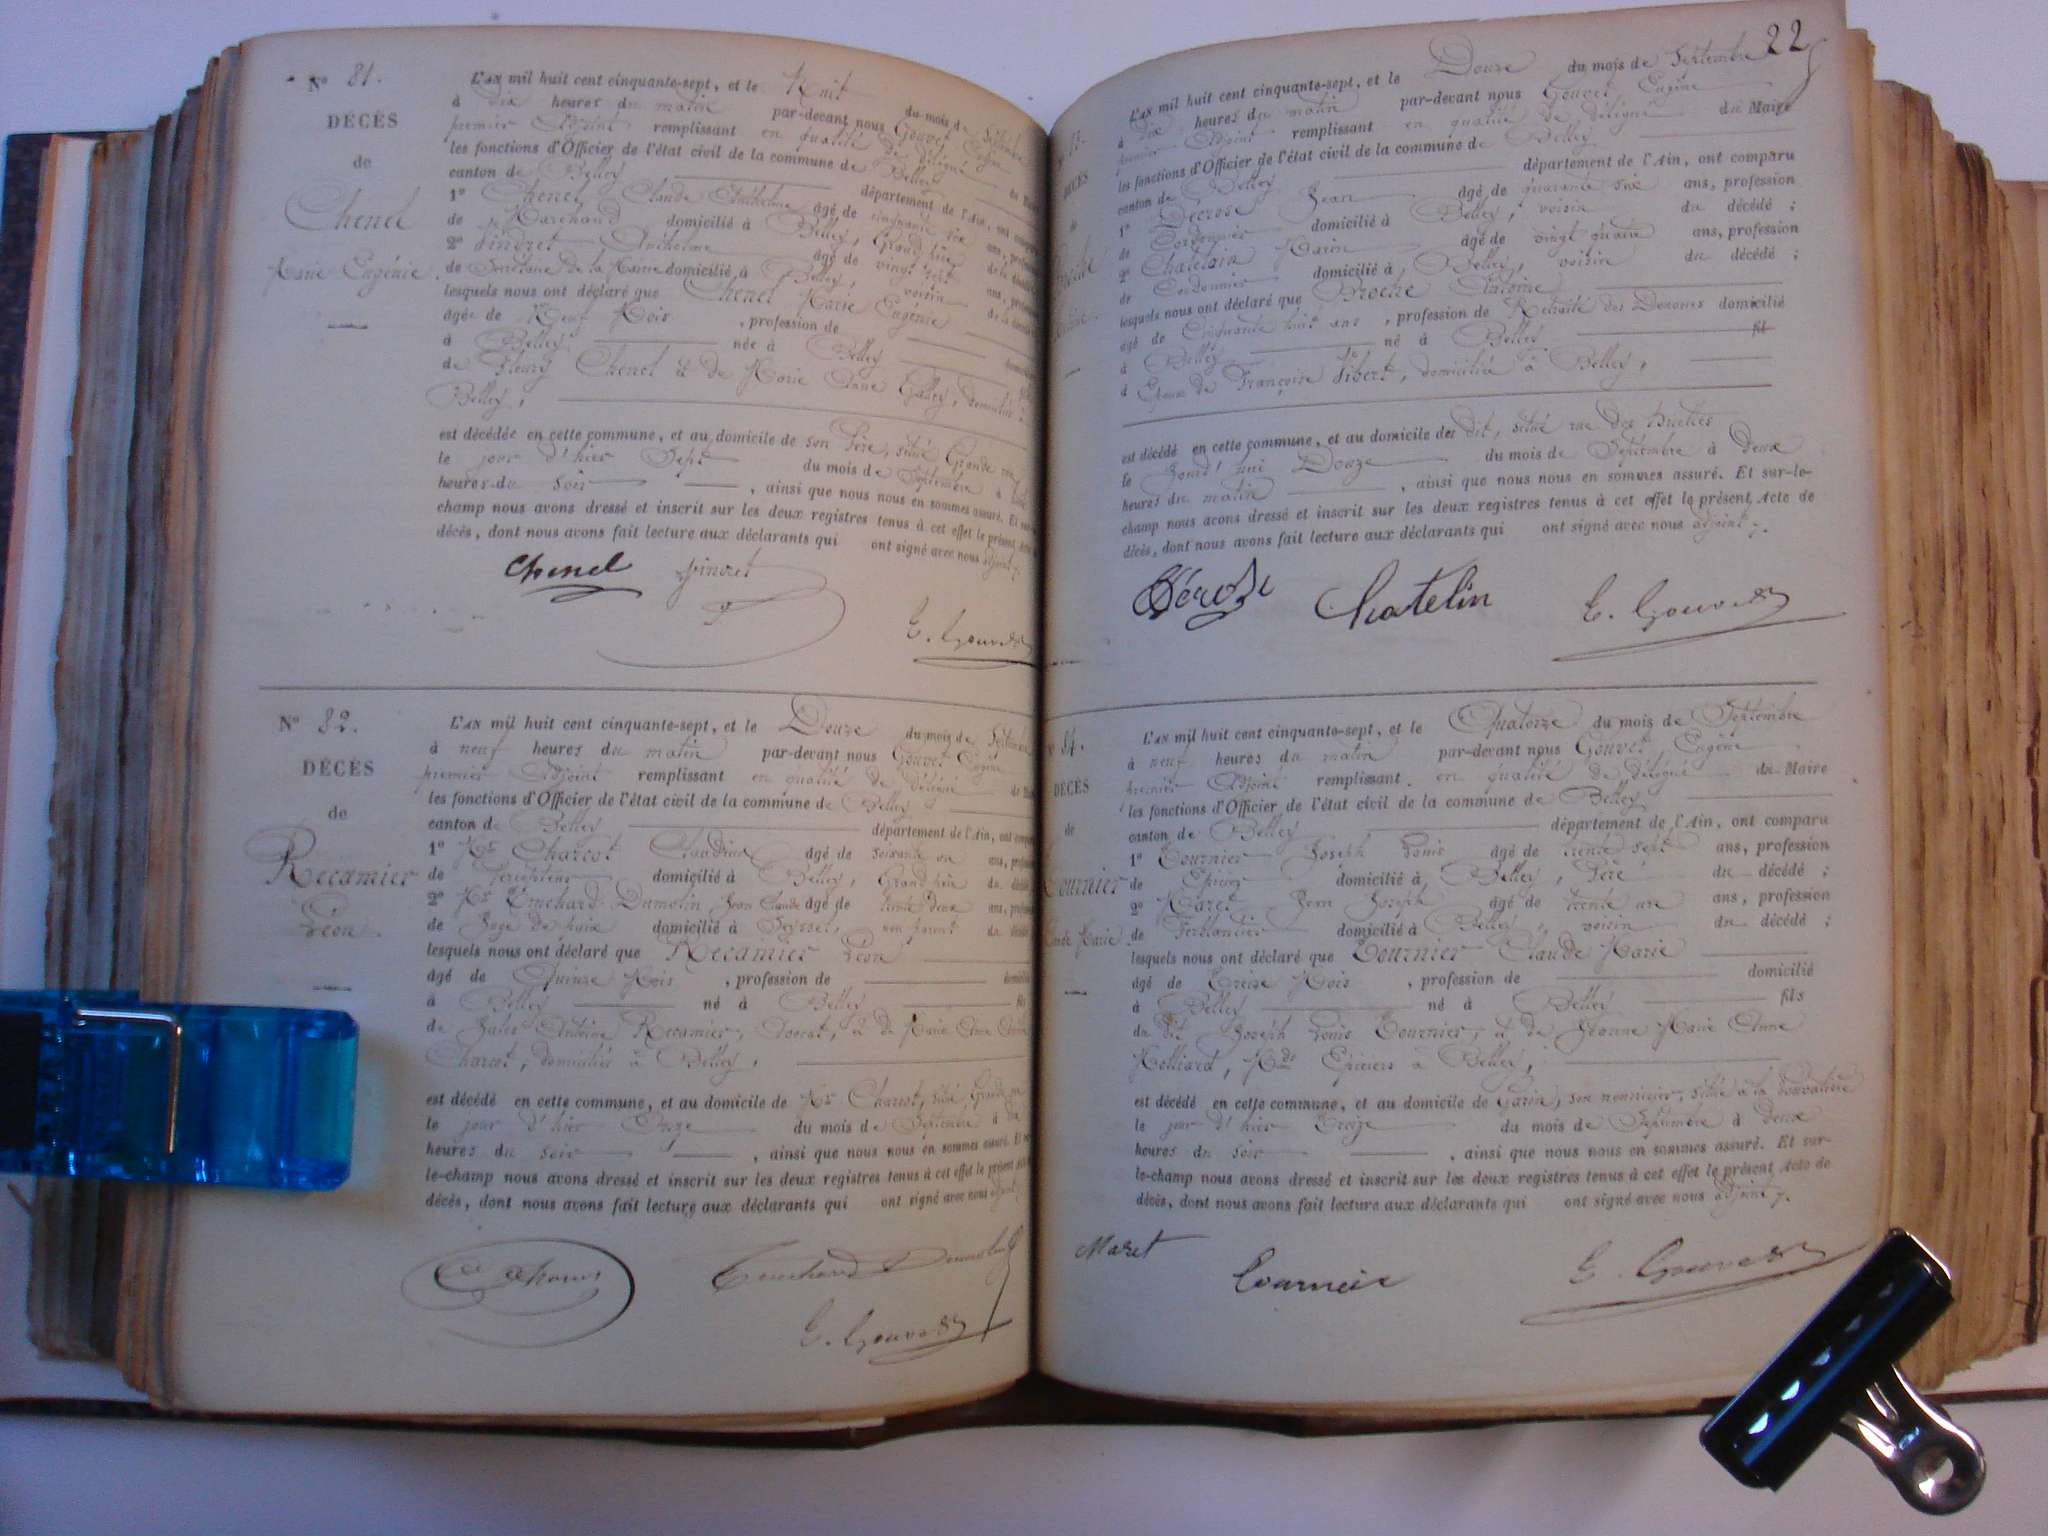 N° 81.
DÉCÈS
de
Chenel
Marie Eugénie
L'AN mil huit cent cinquante-sept, et le Huit du mois de Septembre
à dix heures du matin par-devant nous Gouvet Eugène
premier Adjoint remplissant en qualité de délégué du
les fonctions d'Officier de l'état civil de la commune de Belley
canton de Belley département de l'Ain, ont
1° Chenel Claude Anthelme âgé de cinquante six ans,
de Marchand domicilié à Belley, Grand rue,
2° Pindret Anthelme âgé de vingt sept ans,
de Secrétaire de la Mairie domicilié à Belley, voisin de la
lesquels nous ont déclaré que Chenel Marie Eugénie
âgée de Neuf Mois, profession de
à Belley née à Belley
de Fleury Chenel & de Marie Anne Gallay, domiciliés à
Belley,
est décédée en cette commune, et au domicile de son Père, situé Grande rue
le jour d'hier Sept du mois de Septembre à
heures du soir, ainsi que nous nous en sommes assuré. Et
champ nous avons dressé et inscrit sur les deux registres tenus à cet effet le présent
décès, dont nous avons fait lecture aux déclarants qui ont signé avec nous adjoint
Chenel Pindret
E. Gouvet
N° 82.
DÉCÈS
de
Recamier
Léon.
L'AN mil huit cent cinquante-sept, et le Douze du mois de Septembre
à neuf heures du matin par-devant nous Gouvet Eugène
premier Adjoint remplissant en qualité de délégué
les fonctions d'Officier de l'état civil de la commune de Belley
canton de Belley département de l'Ain, ont
1° Mr Charcot Claudius âgé de soixante un ans,
de Percepteur domicilié à Belley, Grand rue du
2° Mr Truchard Dumolin, Jean Claude âgé de trente deux ans,
de Juge de paix domicilié à Seyssel, non parent du
lesquels nous ont déclaré que Recamier Léon
âgé de Quinze Mois, profession de
à Belley né à Belley fils
de Jules Antoine Recamier, Avocat, & de Marie Anne
Charcot, domiciliés à Belley,
est décédé en cette commune, et au domicile de Mr Charcot, situé Grande rue
le jour d'hier Onze du mois de Septembre à
heures du soir, ainsi que nous nous en sommes assuré. Et
le-champ nous avons dressé et inscrit sur les deux registres tenus à cet effet le présent
décès, dont nous avons fait lecture aux déclarants qui ont signé avec nous adjoint
Truchard Dumolin
E. Gouvet
22
DÉCÈS
L'AN mil huit cent cinquante-sept, et le Douze du mois de Septembre
à dix heures du matin par-devant nous Gouvet Eugène
premier Adjoint remplissant en qualité de délégué du Maire
les fonctions d'Officier de l'état civil de la commune de Belley
canton de Belley département de l'Ain, ont comparu
1° Décrose Jean âgé de quarante six ans, profession
de Cordonnier domicilié à Belley, voisin du décédé ;
2° Chatelain Marin âgé de vingt quatre ans, profession
de Cordonnier domicilié à Belley, voisin du décédé ;
lesquels nous ont déclaré que Broche Antoine
âgé de Cinquante huit ans, profession de Retraité des Douanes domicilié
à Belley né à Belley fils
à Epoux de Françoise Vibert, domiciliée à Belley,
est décédé en cette commune, et au domicile de dit, situé rue des
le Jourd'hui Douze du mois de Septembre à deux
heures du matin, ainsi que nous nous en sommes assuré. Et sur-le-
champ nous avons dressé et inscrit sur les deux registres tenus à cet effet le présent Acte de
décès, dont nous avons fait lecture aux déclarants qui ont signé avec nous adjoint
Chatelin E. Gouvet
84.
DÉCÈS
de
Tournier
Claude Marie
L'AN mil huit cent cinquante-sept, et le Quatorze du mois de Septembre
à neuf heures du matin par-devant nous Gouvet, Eugène
premier Adjoint remplissant en qualité de délégué du Maire
les fonctions d'Officier de l'état civil de la commune de Belley
canton de Belley département de l'Ain, ont comparu
1° Tournier Joseph Louis âgé de trente sept ans, profession
de Epicier domicilié à Belley, Père du décédé ;
2° Maret Jean Joseph âgé de trente un ans, profession
de Ferblantier domicilié à Belley, voisin du décédé ;
lesquels nous ont déclaré que Tournier Claude Marie
âgé de Treize Mois, profession de domicilié
à Belley né à Belley fils
du dit Joseph Louis Tournier, & de Jeanne Marie Anne
Molliard, Mds Epiciers à Belley,
est décédé en cette commune, et au domicile de Garin, son nourricier, situé à la
le jour d'hier Treize du mois de Septembre à deux
heures du soir, ainsi que nous nous en sommes assuré. Et sur-
le-champ nous avons dressé et inscrit sur les deux registres tenus à cet effet le présent Acte de
décès, dont nous avons fait lecture aux déclarants qui ont signé avec nous adjoint
Maret Tournier E. Gouvet